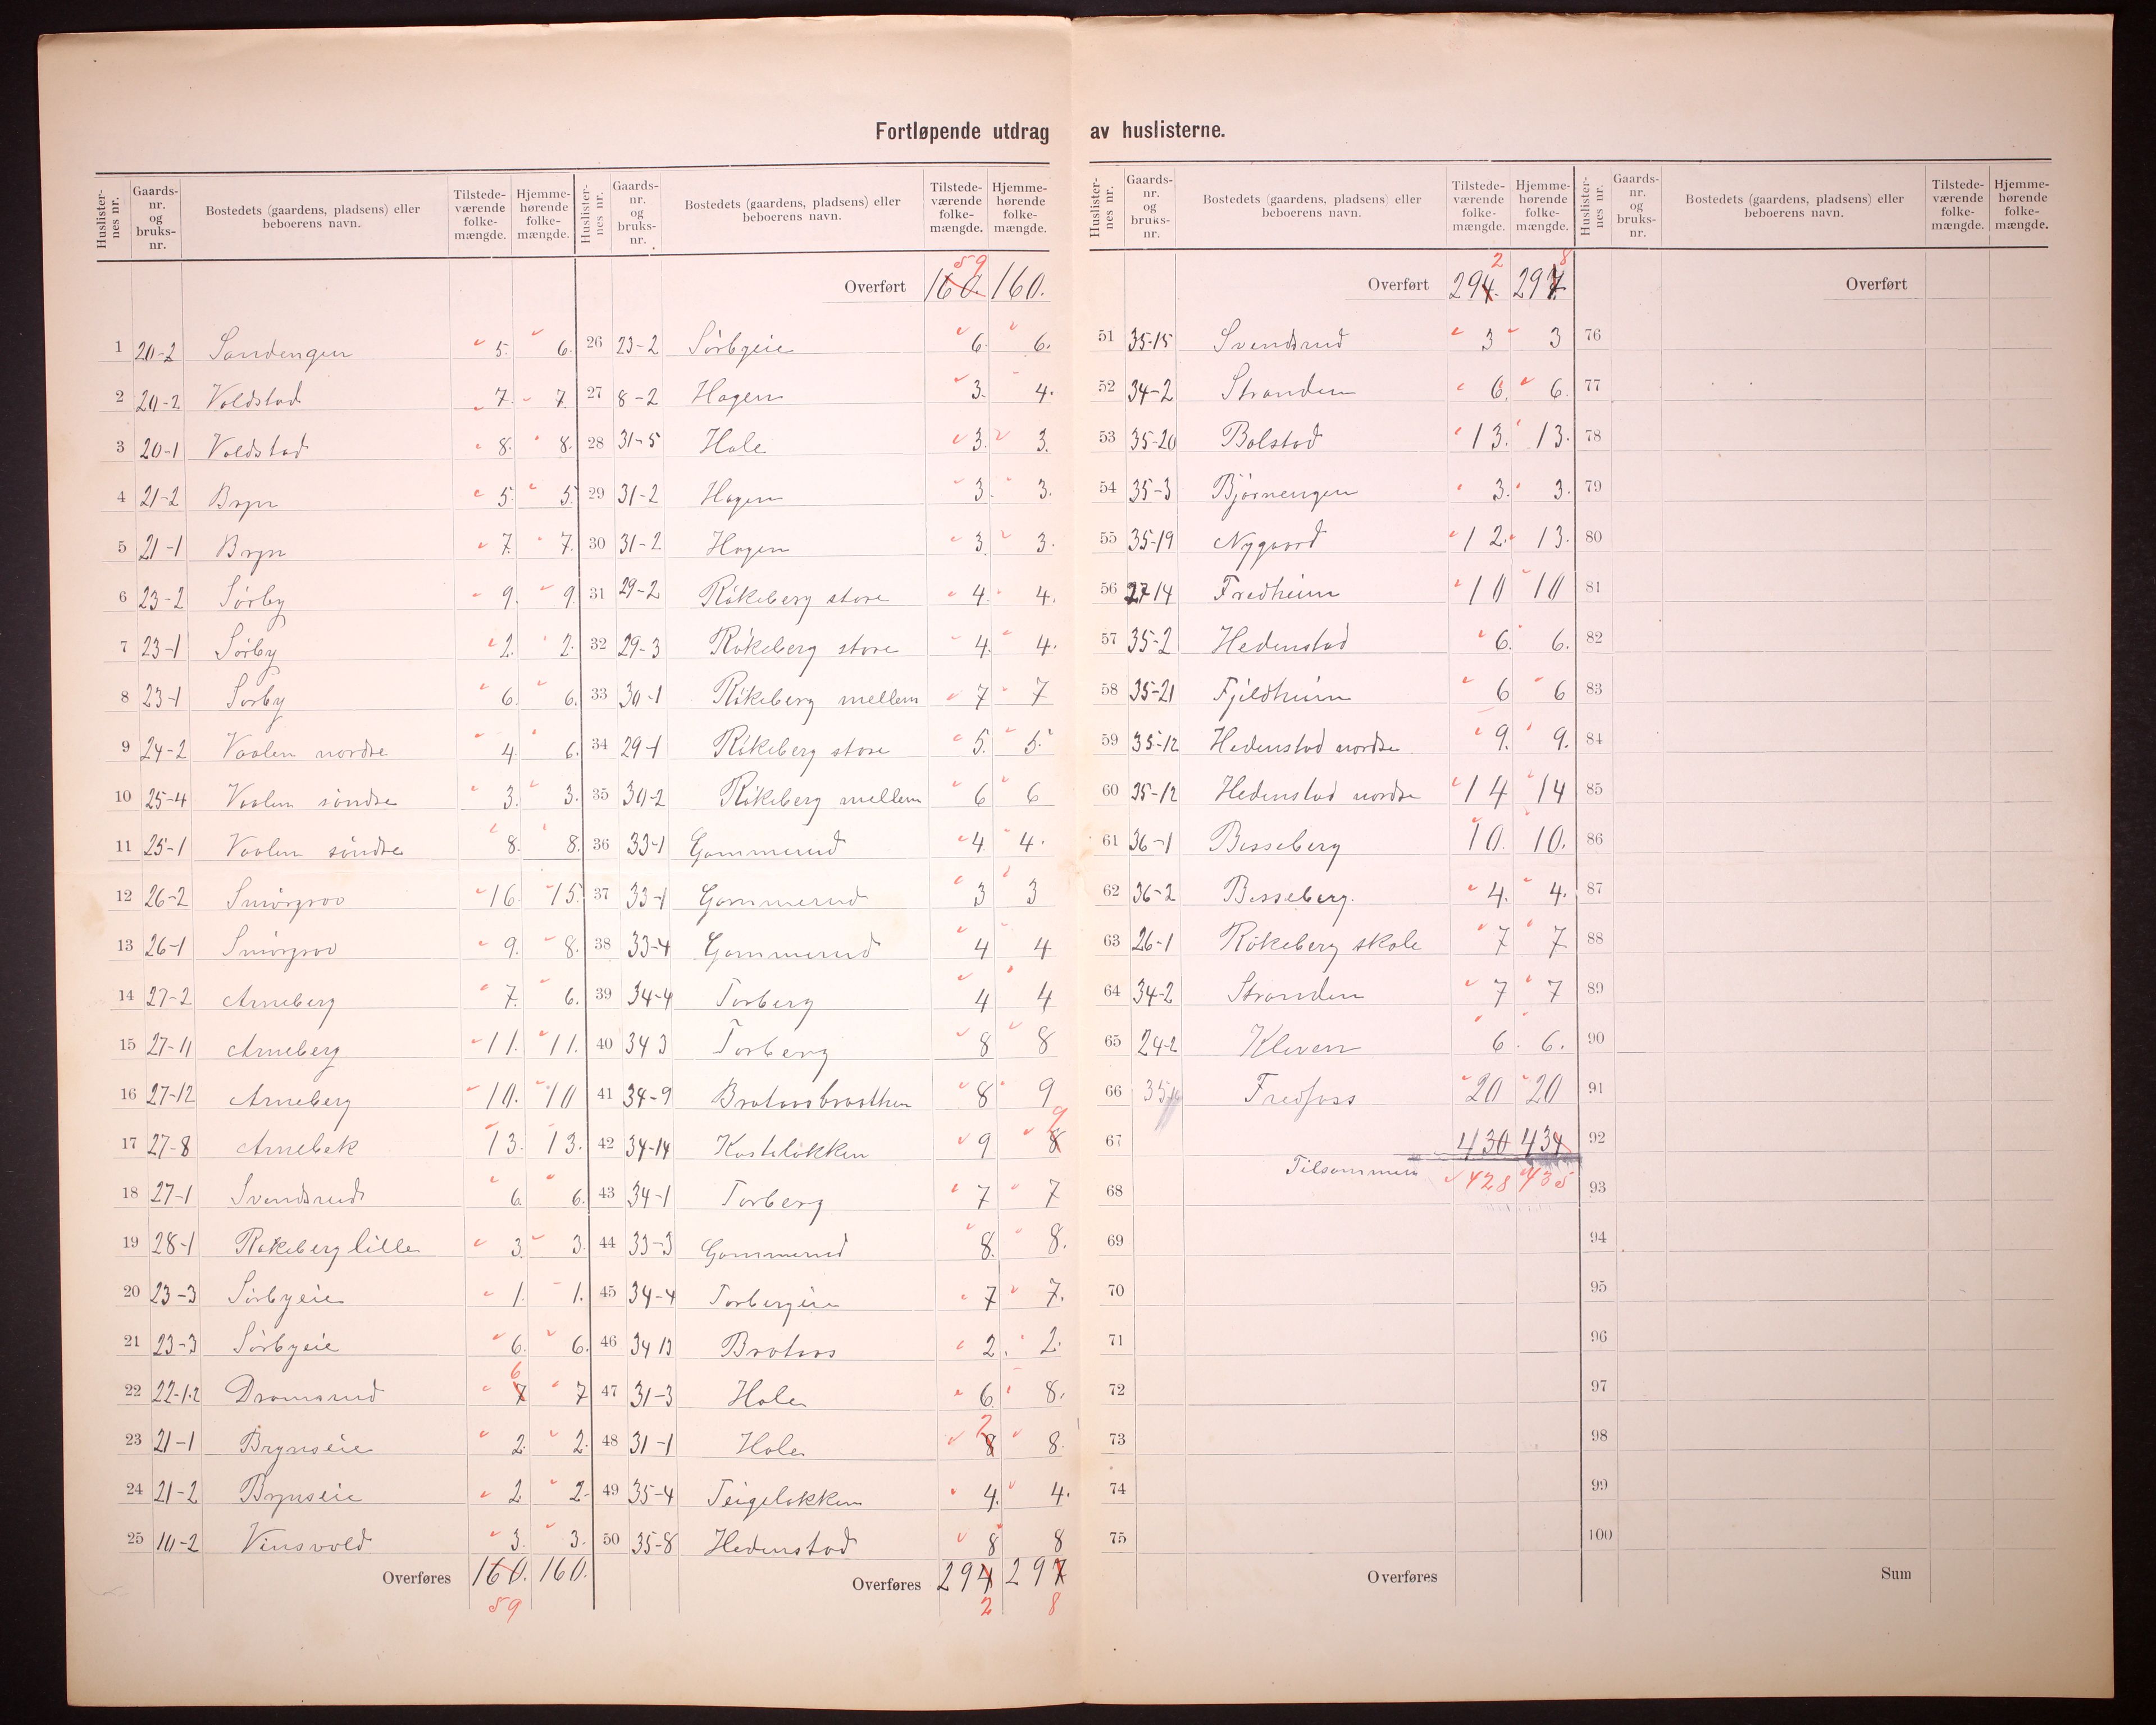 Fortløpende utdrag av huslisterne.
Huslisternes nr. Gaards-nr. og bruks-nr. Bostedets (gaardens, pladsens) eller beboerens navn. Tilstedeværende folkemængde. Hjemmehørende folkemængde.
1 20-2 Sandengen 5. 6.
2 20-2 Voldstad 7. 7.
3 20-1 Voldstad 8. 8.
4 21-2 Bryn 5. 5.
5 21-1 Bryn 7. 7.
6 23-2 Sørby 9. 9.
7 23-1 Sørby 2. 2.
8 23-1 Sørby 6. 6.
9 24-2 Vaalen nordre 4. 6.
10 25-4 Vaalen söndre 3. 3.
11 25-1 Vaalen söndre 8. 8.
12 26-2 Smörgrav 16. 15.
13 26-1 Smörgrav 9. 8.
14 27-2 Arneberg 7. 6.
15 27-11 Arneberg 11. 11.
16 27-12 Arneberg 10. 10
17 27-8 Arnebek 13. 13.
18 27-1 Svendsrud 6. 6.
19 28-1 Røkeberg lille 3. 3.
20 23-3 Sørbyeie 1. 1.
21 23-3 Sørbyeie 6. 6.
22 22-1.2 Dramsrud 7 6 7
23 21-1 Brynseie 2. 2.
24 21-2 Brynseie 2 2
25 10-2 Vinsvold 3. 3.
Overføres 160. 160.
59
Huslisternes nr. Gaards-nr. og bruks-nr. Bostedets (gaardens, pladsens) eller beboerens navn. Tilstedeværende folkemængde. Hjemmehørende folkemængde.
59
Overført 160. 160.
26 23-2 Sørbyeie 6. 6.
27 8-2 Hagen 3. 4.
28 31-5 Hole 3. 3.
29 31-2 Hagen 3. 3.
30 31-2 Hagen 3. 3.
31 29-2 Rökeberg store 4. 4.
32 29-3 Rökeberg store 4. 4.
33 30-1 Rökeberg mellem 7 7
34 29-1 Rökeberg store 5. 5.
35 30-2 Rökeberg mellem 6 6
36 33-1 Gommerud 4 4.
37 33-1 Gommerud 3 3
38 33-4 Gommerud 4 4
39 34-4 Torberg 4 4
40 34 3 Torberg 8 8
41 34-9 Brataasbraathen 8 9
42 34-14 Kasteløkken 9 8 9
43 34-1 Torberg 7 7
44 33-3 Gommerud 8. 8.
45 34-4 Torbergeie 7 7.
46 34 13 Brataas 2. 2.
47 31-3 Hole 6. 8.
48 31-1 Hole 8 7 8.
49 35-4 Teigeløkken 4. 4.
50 35-8 Hedenstad 8 8
Overføres 294 297
2 8
Huslisternes nr. Gaards-nr. og bruks-nr. Bostedets (gaardens, pladsens) eller beboerens navn. Tilstedeværende folkemængde. Hjemmehørende folkemængde.
2 8
Overført 294. 297.
51 35-15 Svendsrud 3 3
52 34-2 Stranden 6. 6.
53 35-20 Bolstad 13. 13.
54 35-3 Bjørnengen 3. 3.
55 35-19 Nygaard 12. 13.
56 27 14 Fredheim 10 10
57 35-2 Hedenstad 6. 6.
58 35-21 Fjeldheim 6 6
59 35-12 Hedenstad nordre 9. 9.
60 35-12 Hedenstad nordre 14 14
61 36-1 Besseberg 10. 10.
62 36-2 Besseberg. 4. 4.
63 26-1 Rökeberg skole 7 7
64 34-2 Stranden 7 7
65 24-2 Kleven 6. 6.
66 35 Fredfoss 20 20
67 430 434
Tilsammen 428 435
68
69
70
71
72
73
74
75
Overføres
Huslisternes nr. Gaards-nr. og bruks-nr. Bostedets (gaardens, pladsens) eller beboerens navn. Tilstedeværende folkemængde. Hjemmehørende folkemængde.
Overført
76
77
78
79
80
81
82
83
84
85
86
87
88
89
90
91
92
93
94
95
96
97
98
99
100
Sum